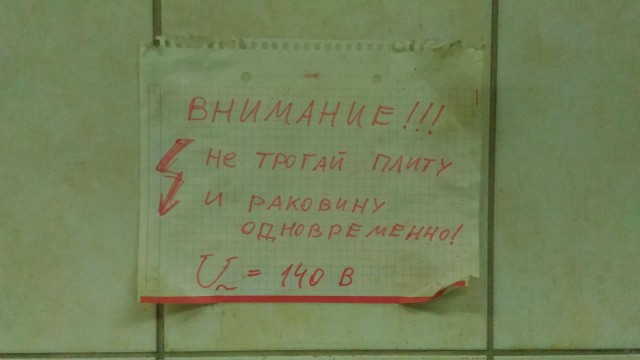 ВНИМАНИЕ!!!
НЕ ТРОГАЙ ПЛИТУ
И РАКОВИНУ
ОДНОВРЕМЕННО!
U~ = 140 В